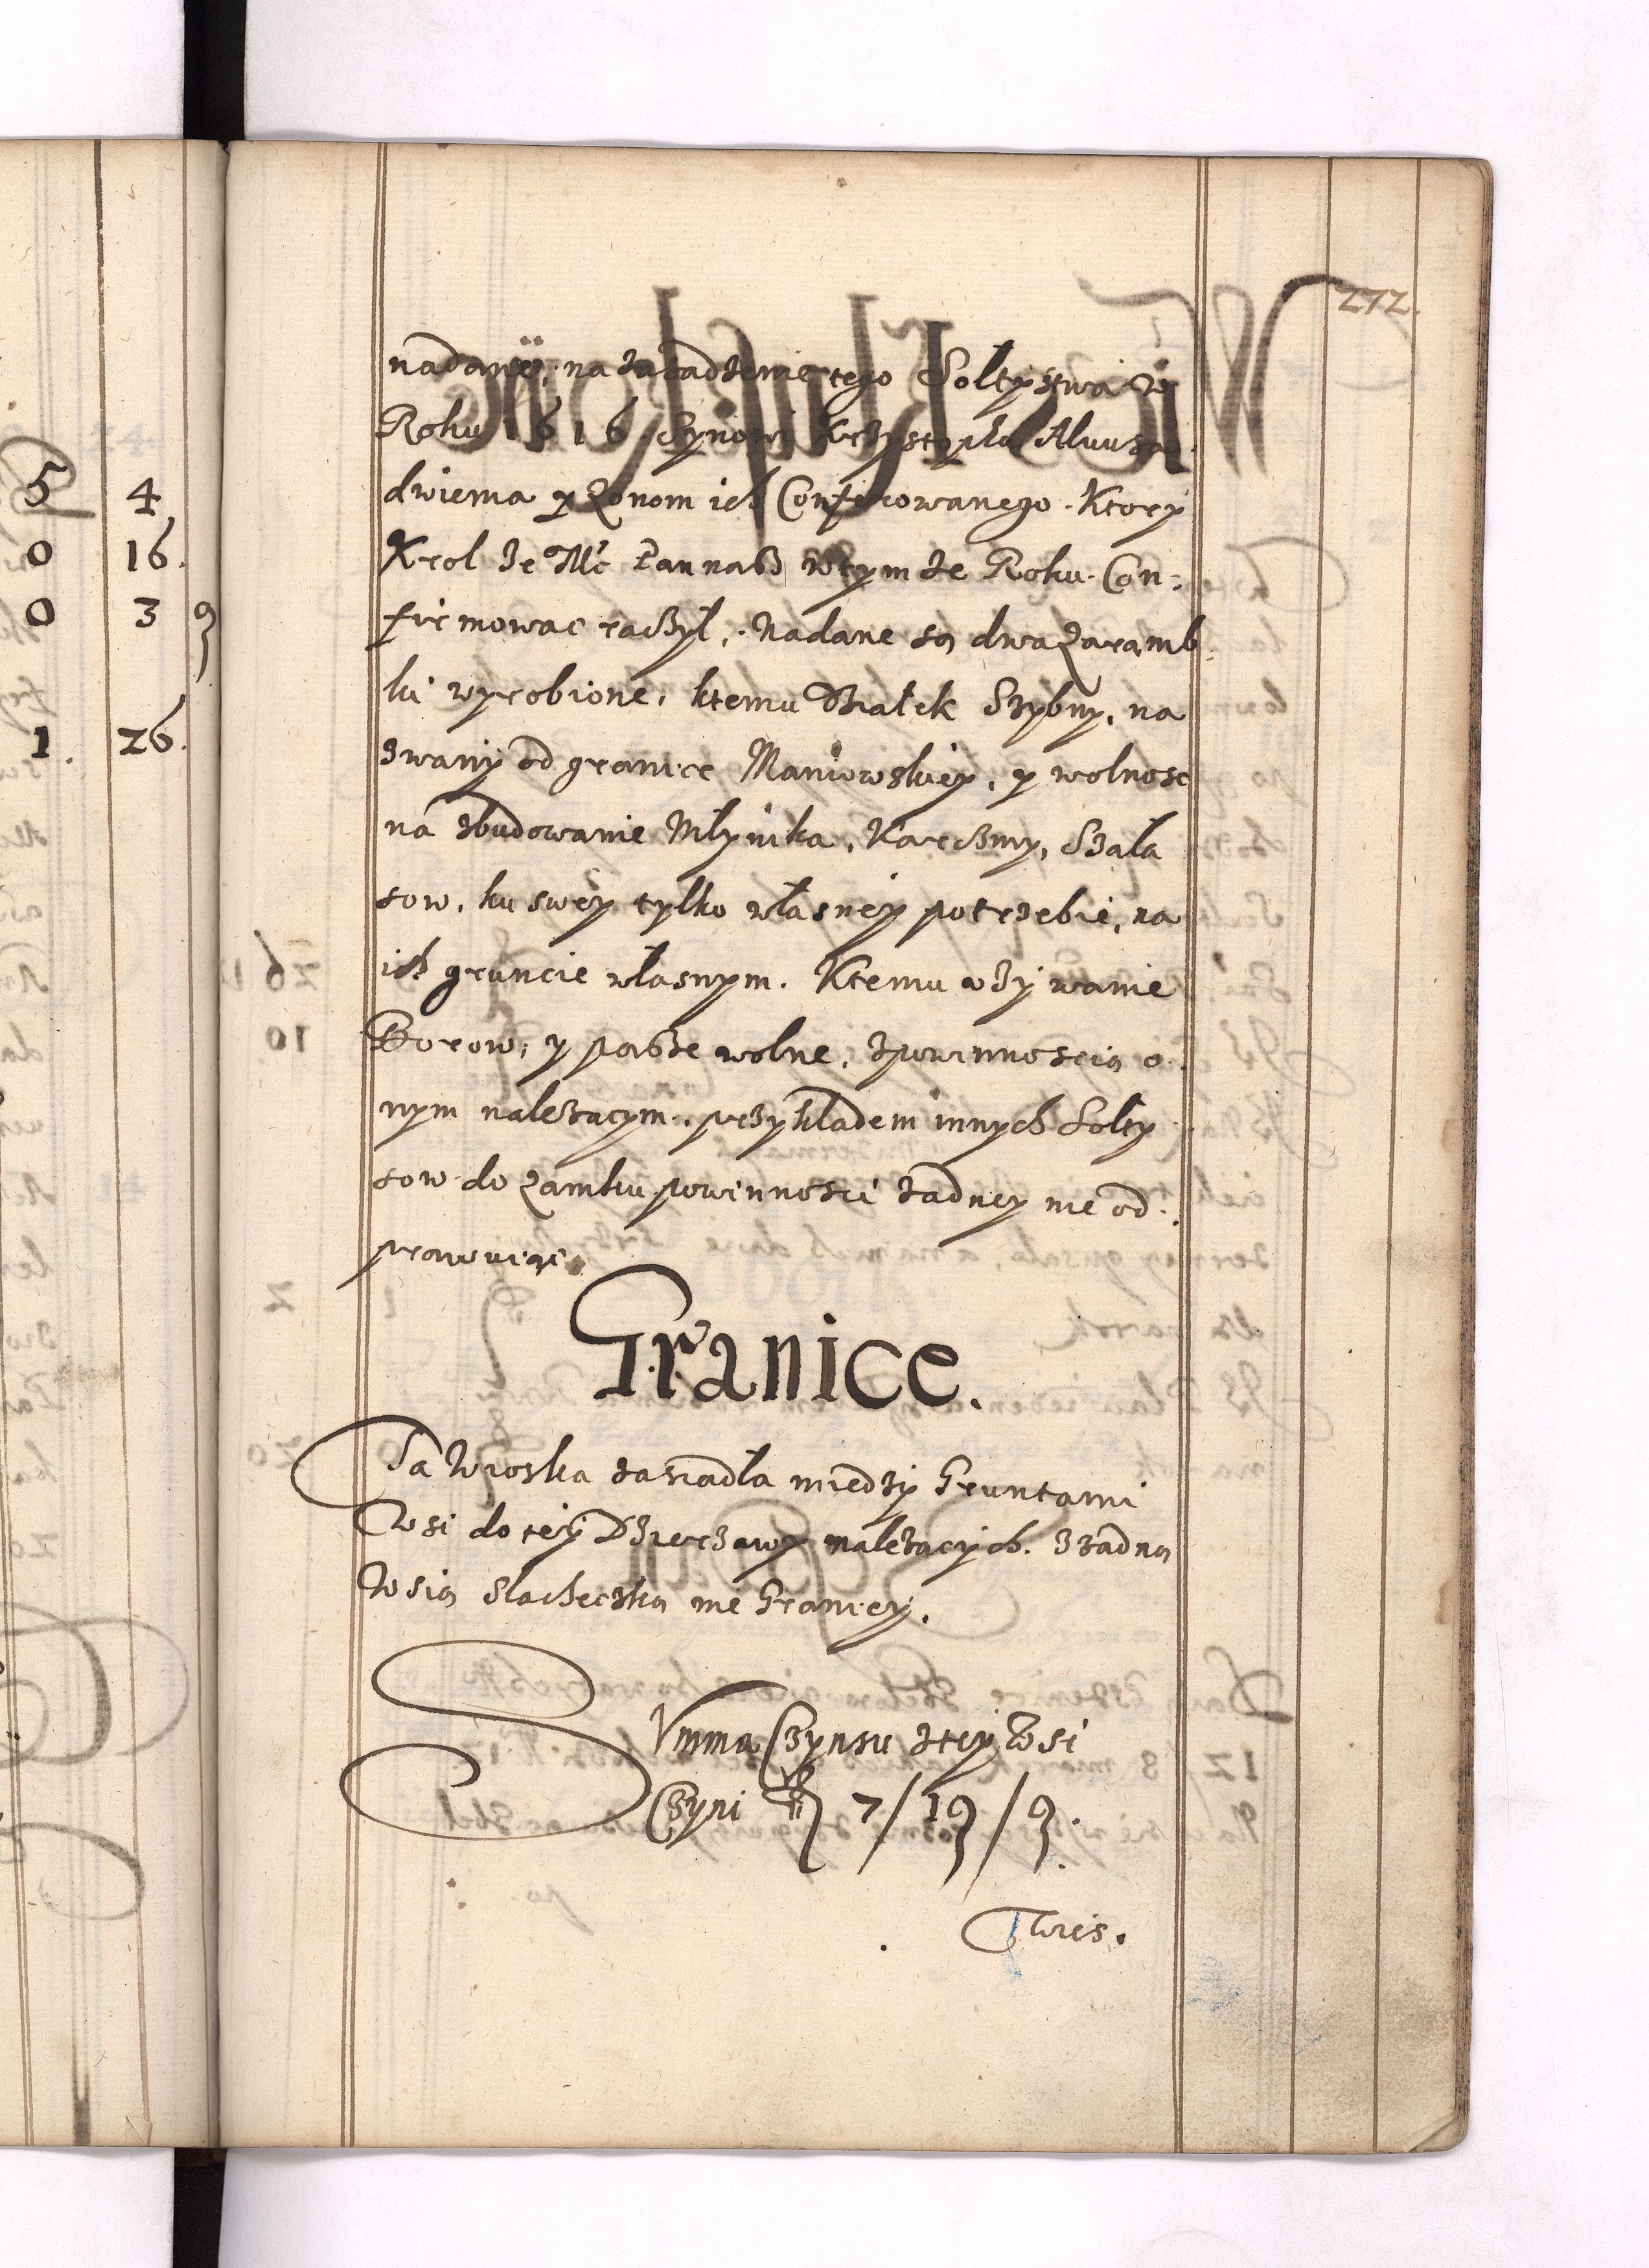 272.
nadany, na zasadzenie tego Soltystwa w
Roku 1616 Synom Krzysztopha
dwiema y Zonom ich Conferowanego. Ktory
Krol Je Mc Pan nasz wtymze Roku Con:
firmowac raczył, Nadane są dwa Zaramb
ki wyrobione, ktemu Działek Szybny, na
zwany od granice Maniowskiey, y wolnosc
na zbudowanie Młynika, Karczmy, Szała
sow, ku swey tylko własney potrzebie, na
ich gruncie własnym. Ktemu vzywanie
Borow, y pasze wolne, zpowinnoscią o
nym nalezacym, przykladem innych Solty
sow do Zamku powinnosci zadney nie od
prawuiąc
Granice.
Ta Wioska zasiadła miedzy Gruntami
Wsi do tey Dzierzawy nalezacych. Zzadną
Wsią Slachecką nie Graniczy.
Summa Czynsu ztey Wsi
Czyni 7/19/9.
Wies.
5 4
0 16.
0 3 9
1. 26.